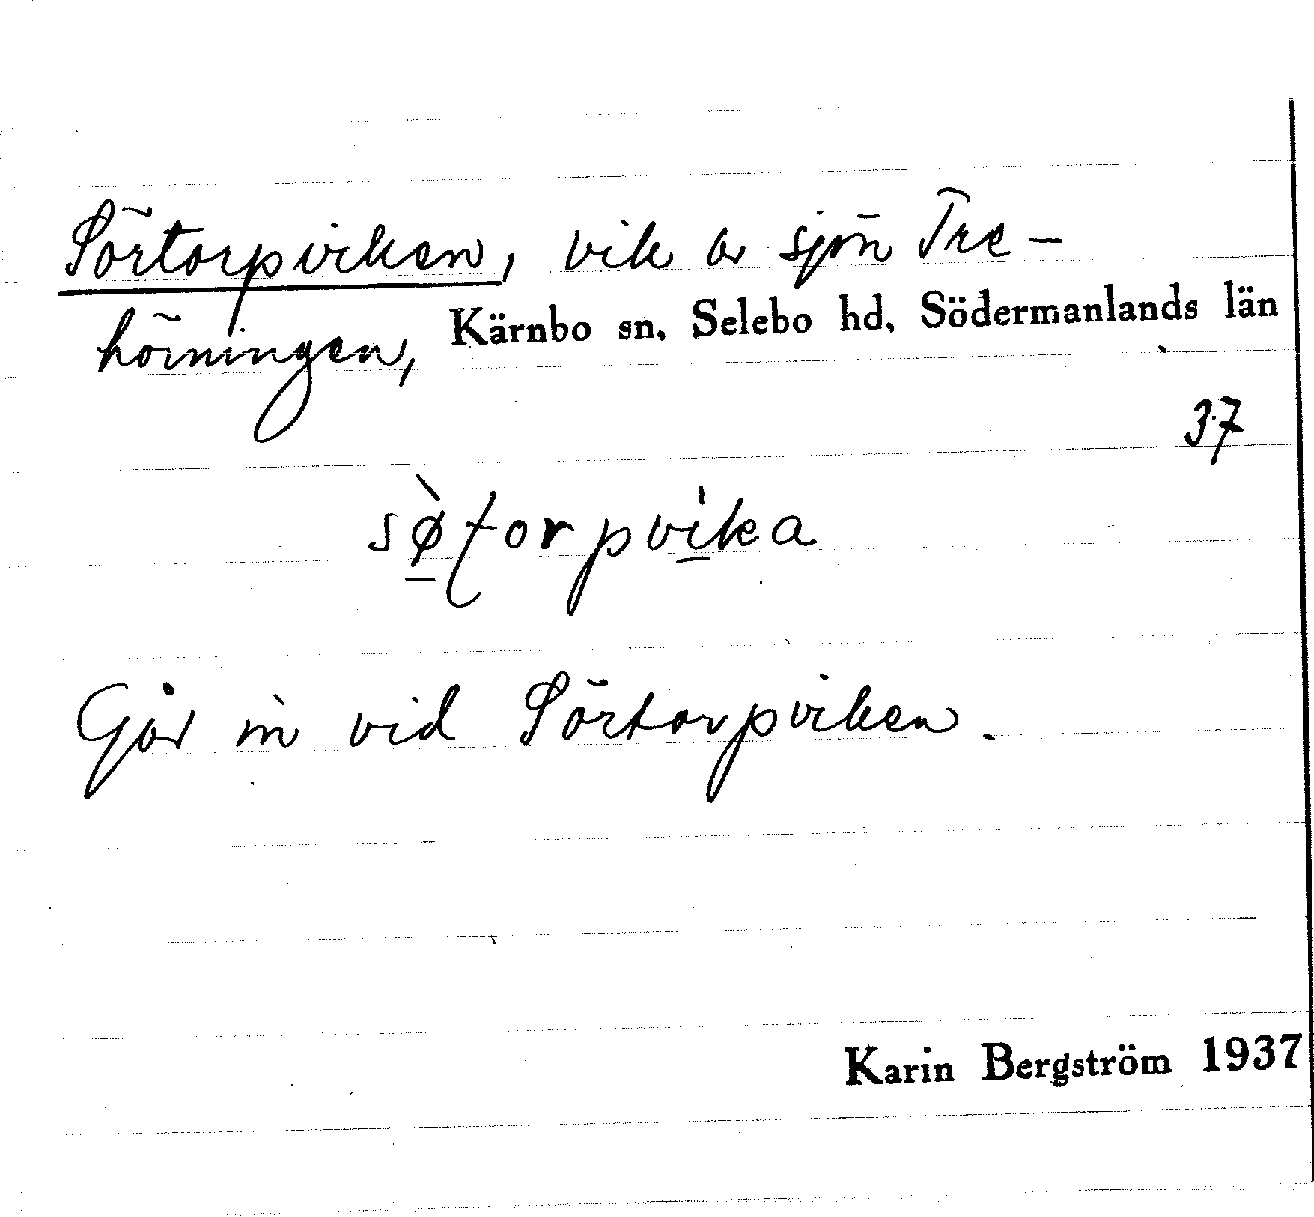 Sörtorpviken, vik av sjön Tre-
hörningen, Kärnbo sn, Selebo hd, Södermanlands län
37
sø̀ƭorpvi̍ka
Går in vid Sörtorpviken.
Karin Bergström 1937